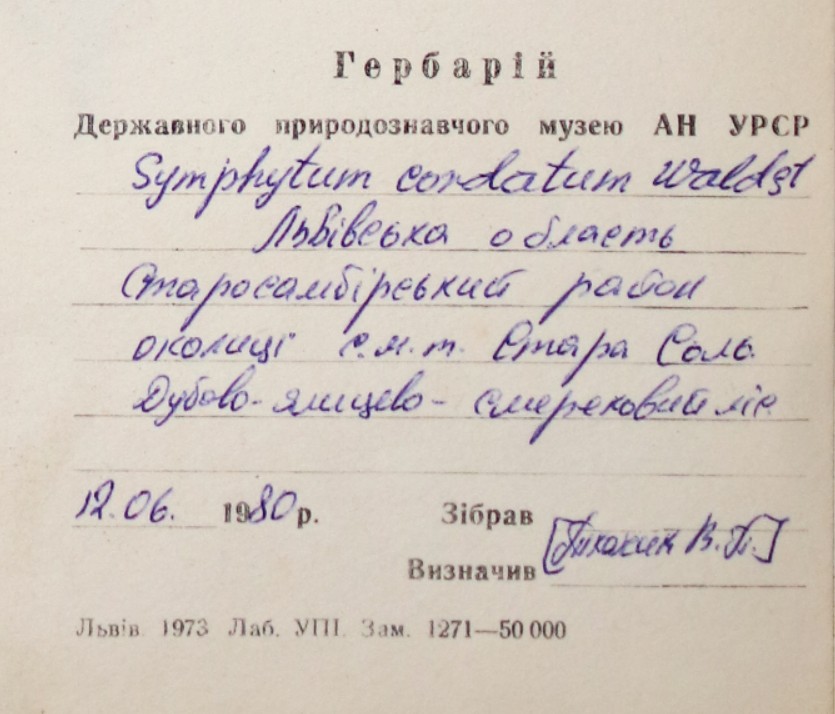 Гербарій
Державного природознавчого музею АН УРСР
Symphytum cordatum Waldst
Львівська область
Старосамбірський район
околиці с.м.т. Стара Соль
Дубово-ялицево-смерековий ліс
12.06. 1980 р. Зібрав
Визначив [Ткачик В.П.]
Львів 1973 Лаб. УПІ. Зам. 1271—50 000